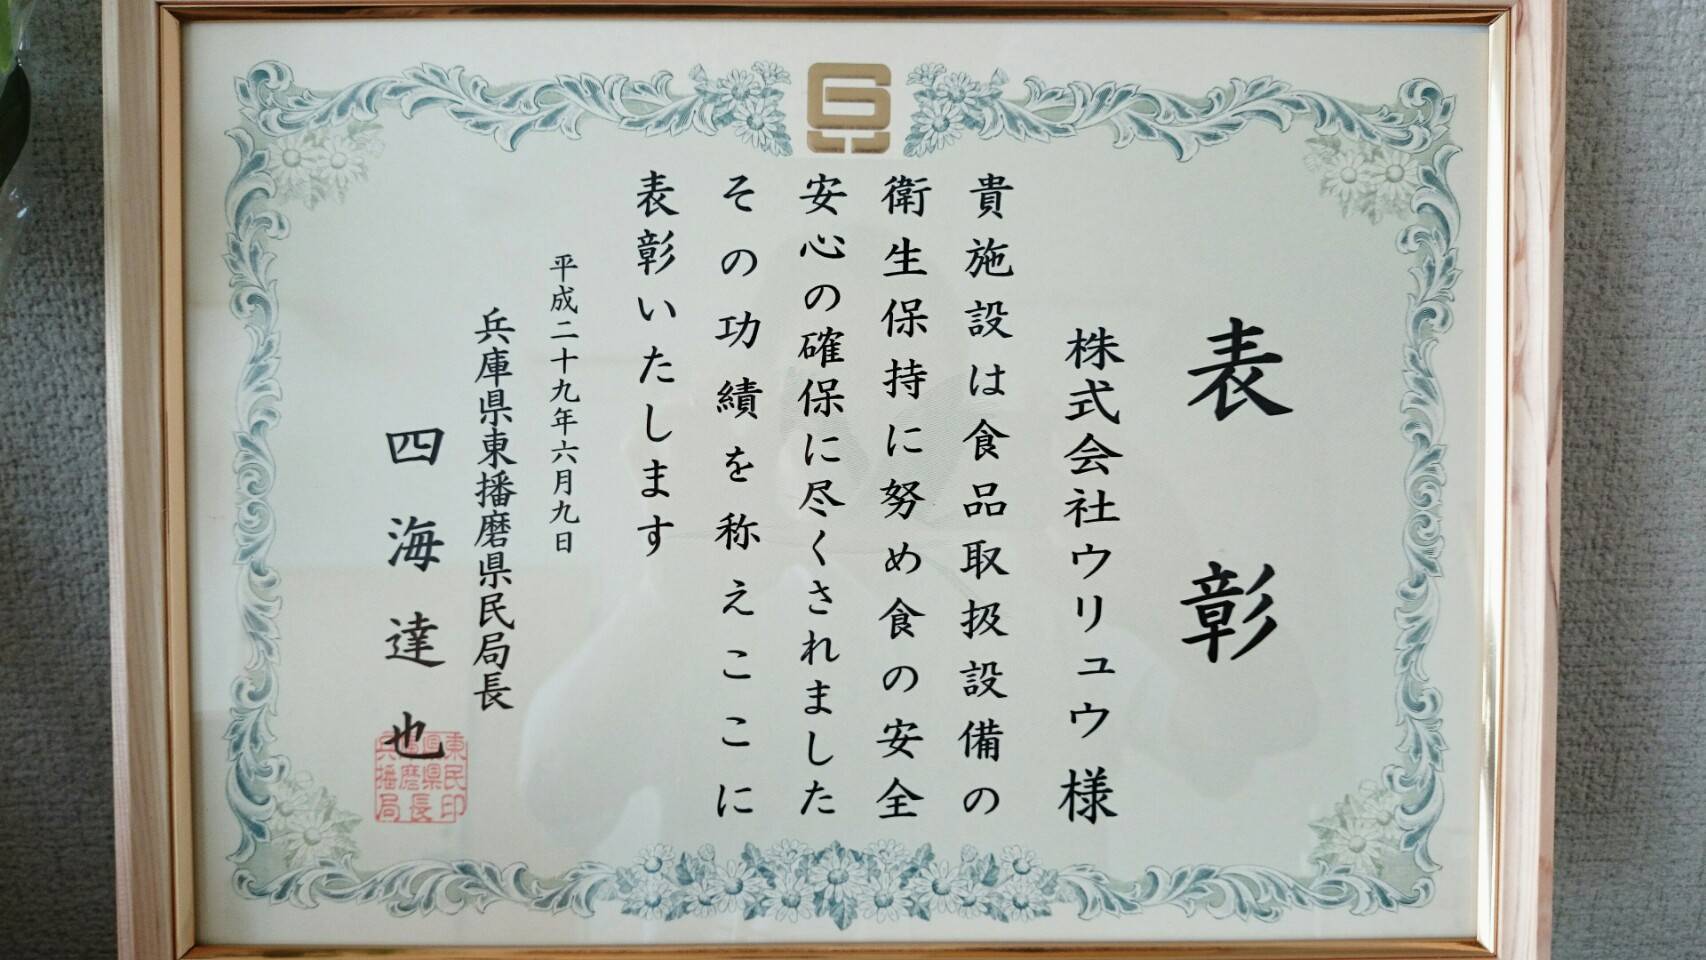 表彰
株式会社ウリュウ様
貴施設は食品取扱設備の
衛生保持に努め食の安全
安心の確保に尽くされました
その功績を称えここに
表彰いたします
平成二十九年六月九日
兵庫県東播磨県民局長
四海達也
東民印
播磨県長
兵播局